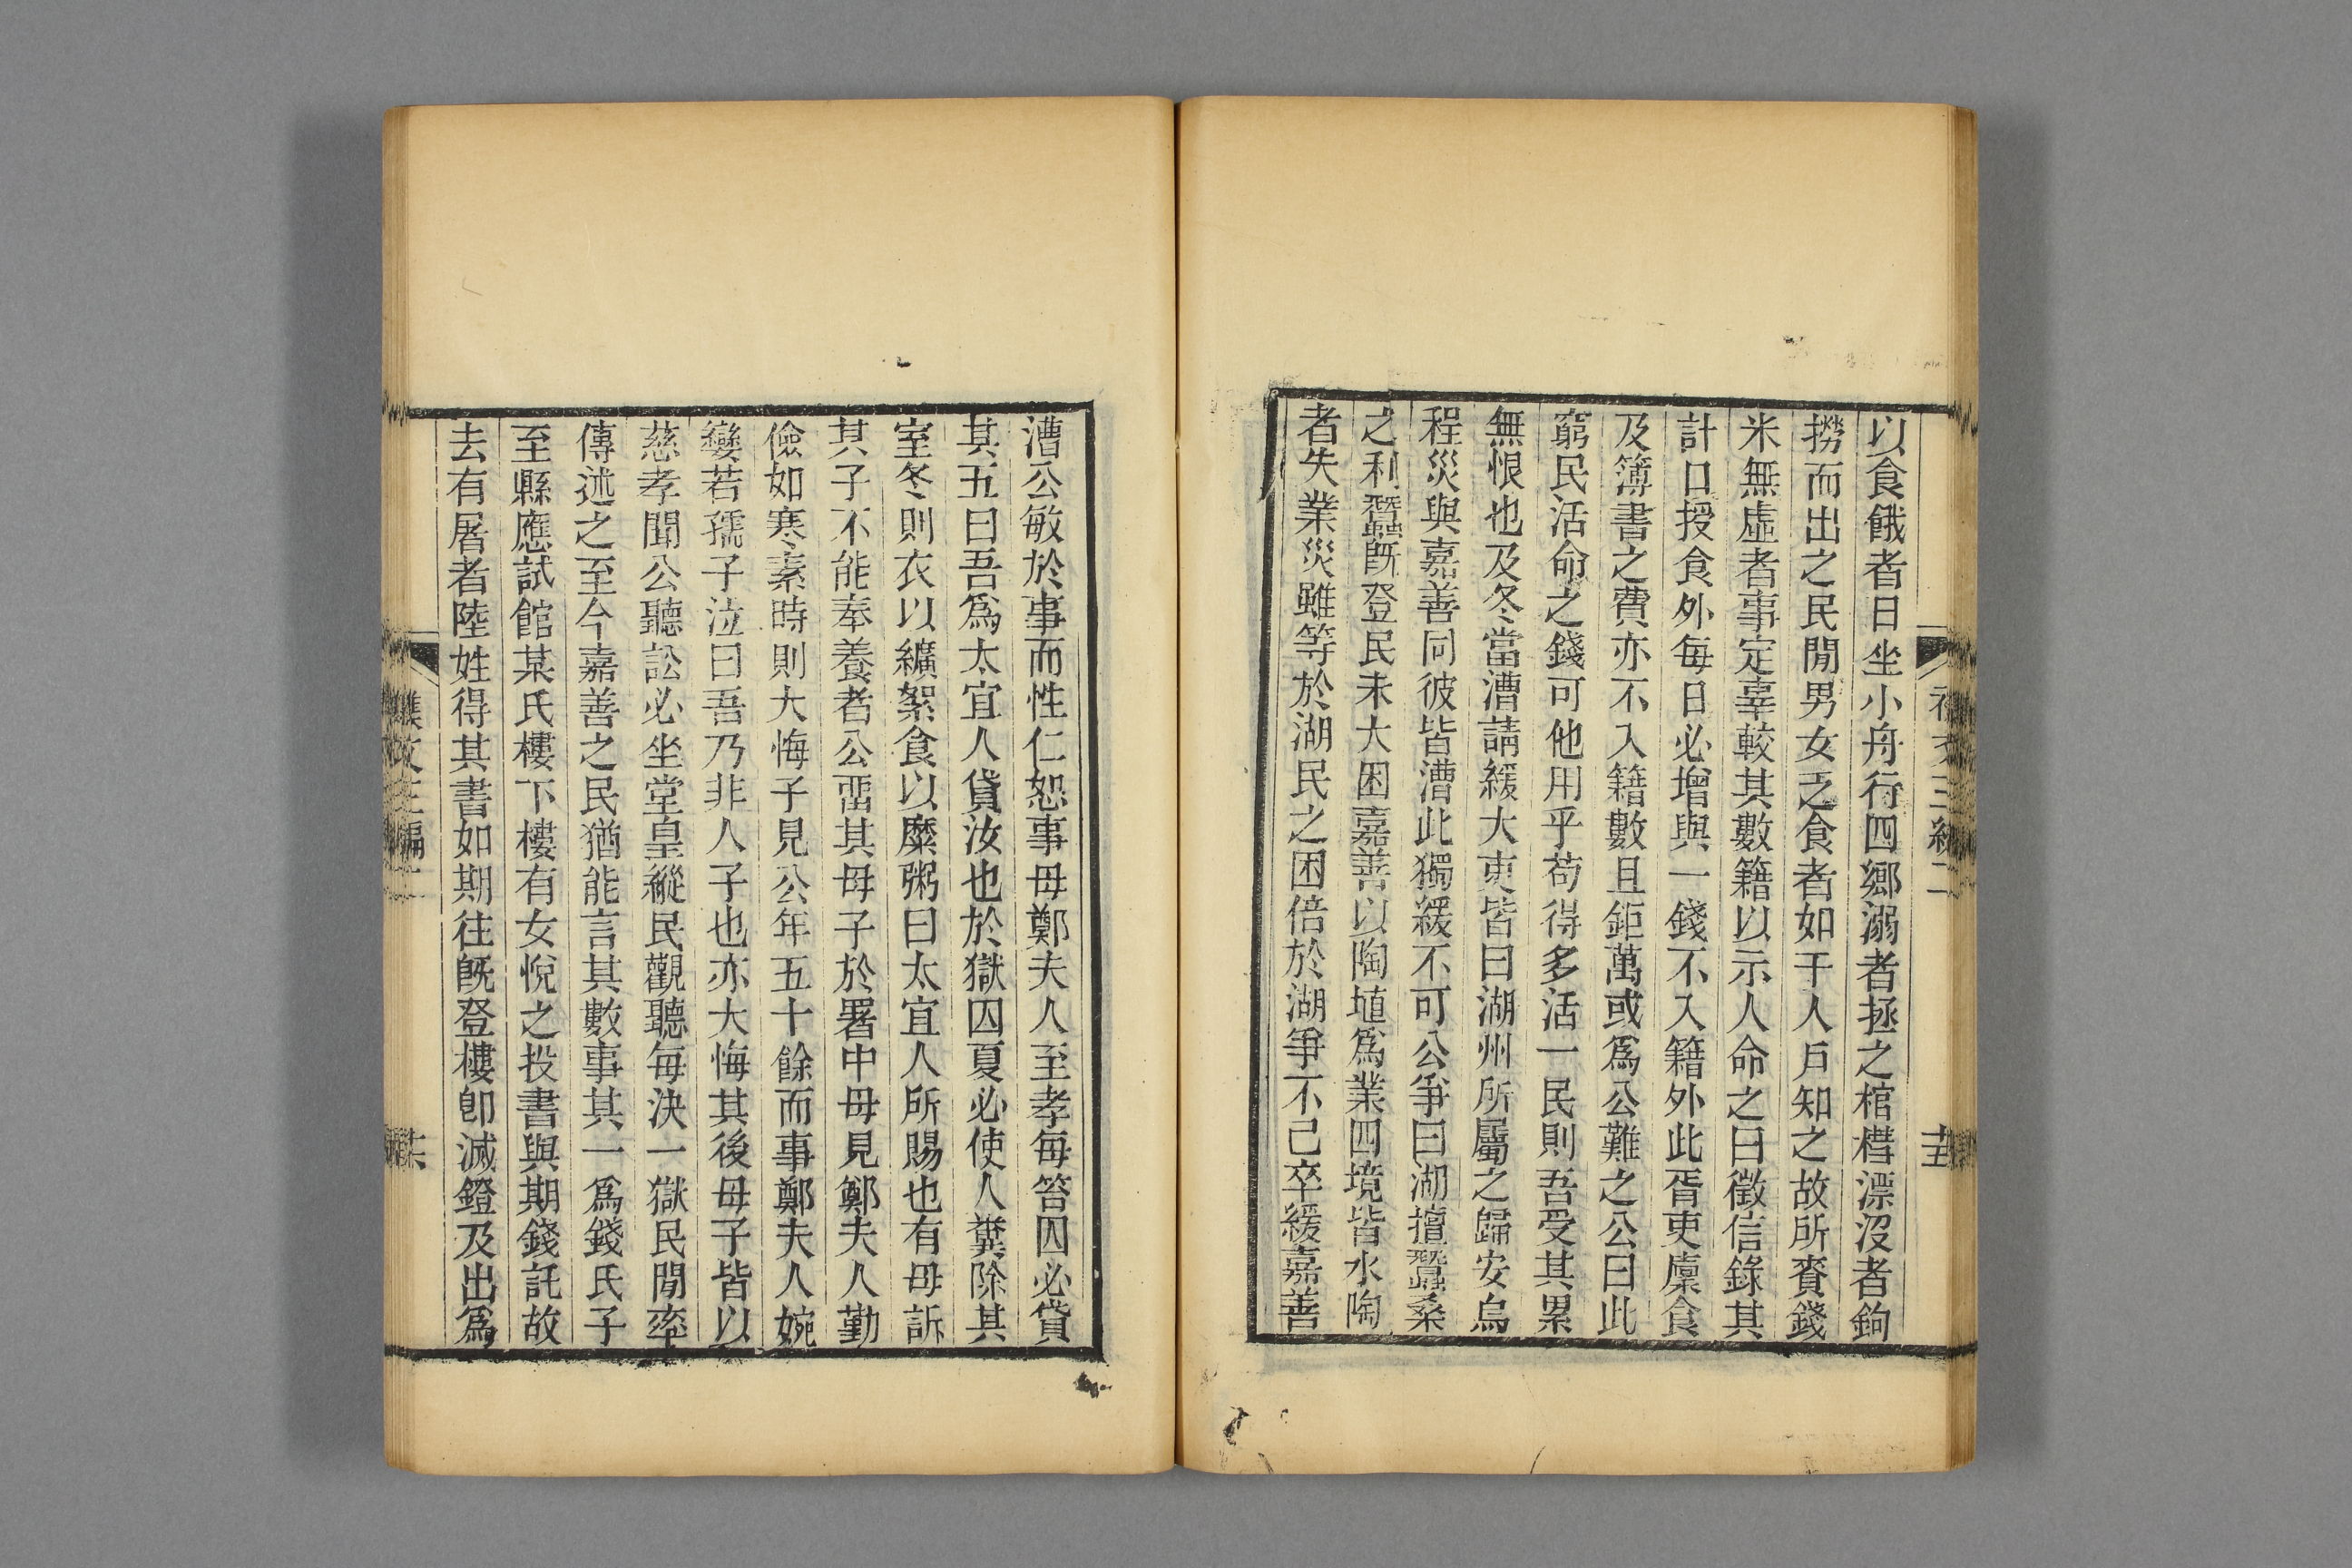 以食餓者日坐小舟行四鄉溺者拯之棺槥漂沒者鉤
撈而出之民閒男女乏食者如干人戶知之故所賫錢
米無虛者事定辜較其數籍以示人命之曰徵信錄其
計口授食外每日必增與一錢不入籍外此胥吏廩食
及簿書之費亦不入籍數且鉅萬或爲公難之公曰此
窮民活命之錢可他用乎苟得多活一民則吾受其累
無恨也及冬當漕請緩大吏皆曰湖州所屬之歸安烏
程災與嘉善同彼皆漕此獨緩不可公爭曰湖擅蠶桑
之利蠶旣登民未大困嘉善以陶埴爲業四境皆水陶
者失業災雖等於湖民之困倍於湖爭不已卒緩嘉善
漕公敏於事而性仁恕事母鄭夫人至孝每笞囚必貸
其五曰吾爲太宜人貸汝也於獄囚夏必使人糞除其
室冬則衣以纊絮食以糜粥曰太宜人所賜也有母訴
其子不能奉養者公畱其母子於署中母見鄭夫人勤
儉如寒素時則大悔子見公年五十餘而事鄭夫人婉
孌若孺子泣曰吾乃非人子也亦大悔其後母子皆以
慈孝聞公聽訟必坐堂皇縱民觀聽每決一獄民閒率
傳述之至今嘉善之民猶能言其數事其一爲錢氏子
至縣應試館某氏樓下樓有女悅之投書與期錢託故
去有屠者陸姓得其書如期往旣登樓卽滅鐙及出爲